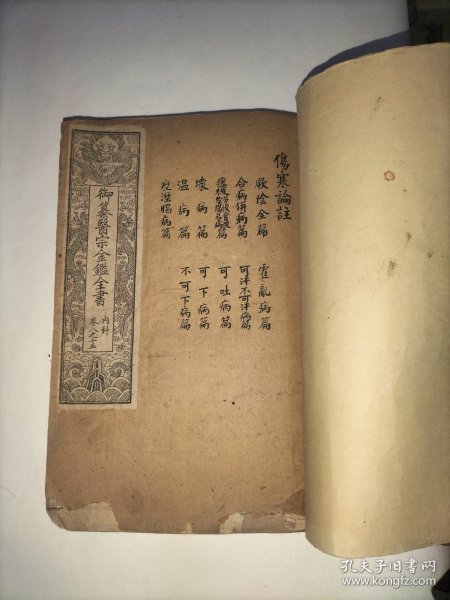 傷寒論註
厥陰全篇　霍亂病篇
合病併病篇　可汗不可汗病篇
瘥後勞復食復陰陽易病篇　可吐病篇
壞病篇　可下病篇
温病篇　不可下病篇
痙溼暍病篇
御纂醫宗金鑑全書
内科
卷八之十五
孔夫子旧书网
www.kongfz.com